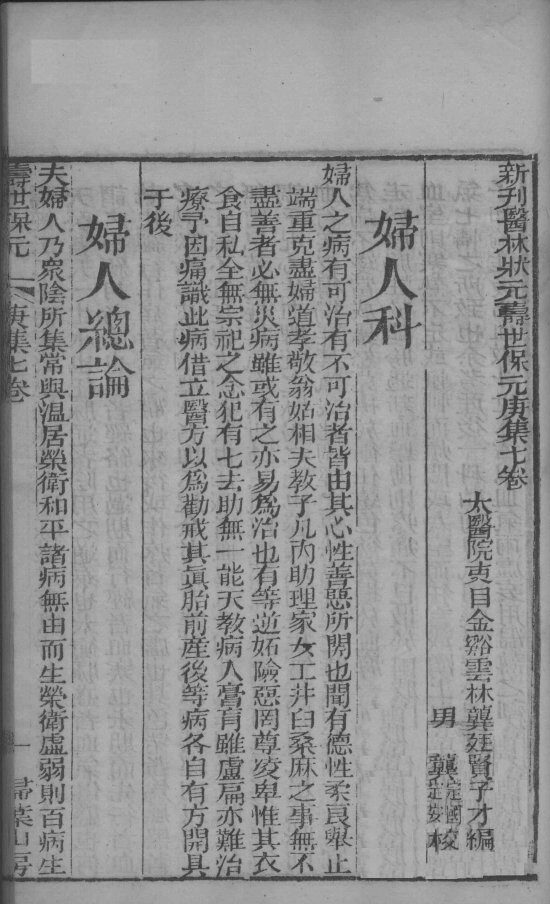 新刊醫林狀元壽世保元庚集七卷
太醫院吏目金谿雲林龔廷賢子才編
男
龔
定國
定安
校
婦人科
婦人之病有可治有不可治者皆由其心性善惡所關也聞有德性柔良舉止
端重克盡婦道孝敬翁姑相夫教子凡內助理家女工井臼桑麻之事無不
盡善者必無災病雖或有之亦易為治也有等逆妬險惡罔尊凌卑惟其衣
食自私全無宗祀之念犯有七去助無一能天教病入膏肓雖盧扁亦難治
療予因痛識此病借立醫方以為勸戒其眞胎前産後等病各自有方開具
于後
婦人總論
夫婦人乃衆陰所集常與温居榮衛和平諸病無由而生榮衛虛弱則百病生
壽世保元
庚集七卷
一
掃葉山房